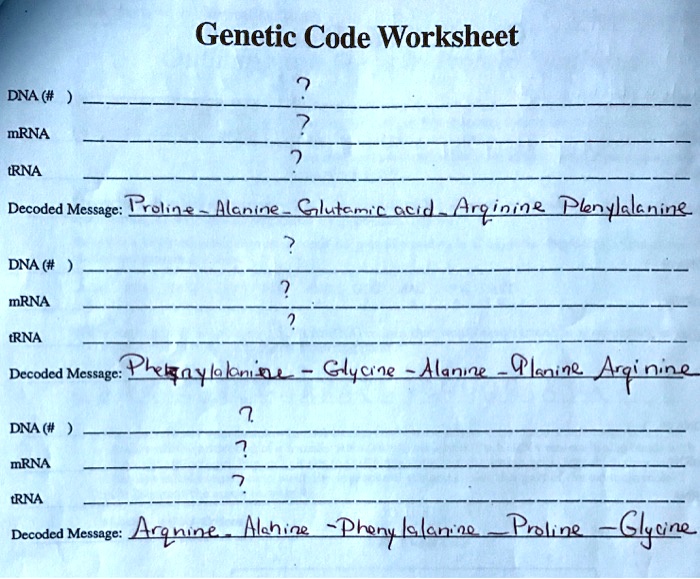 Genetic Code Worksheet
DNA (# ) ?
mRNA ?
tRNA ?
Decoded Message: Proline - Alanine - Glutamic acid - Arginine Phenylalanine
DNA (# ) ?
mRNA ?
tRNA ?
Decoded Message: Phenylalanine - Glycine - Alanine - Alanine Arginine
DNA (# ) ?
mRNA ?
tRNA ?
Decoded Message: Argnine - Alanine - Phenylalanine - Proline - Glycine